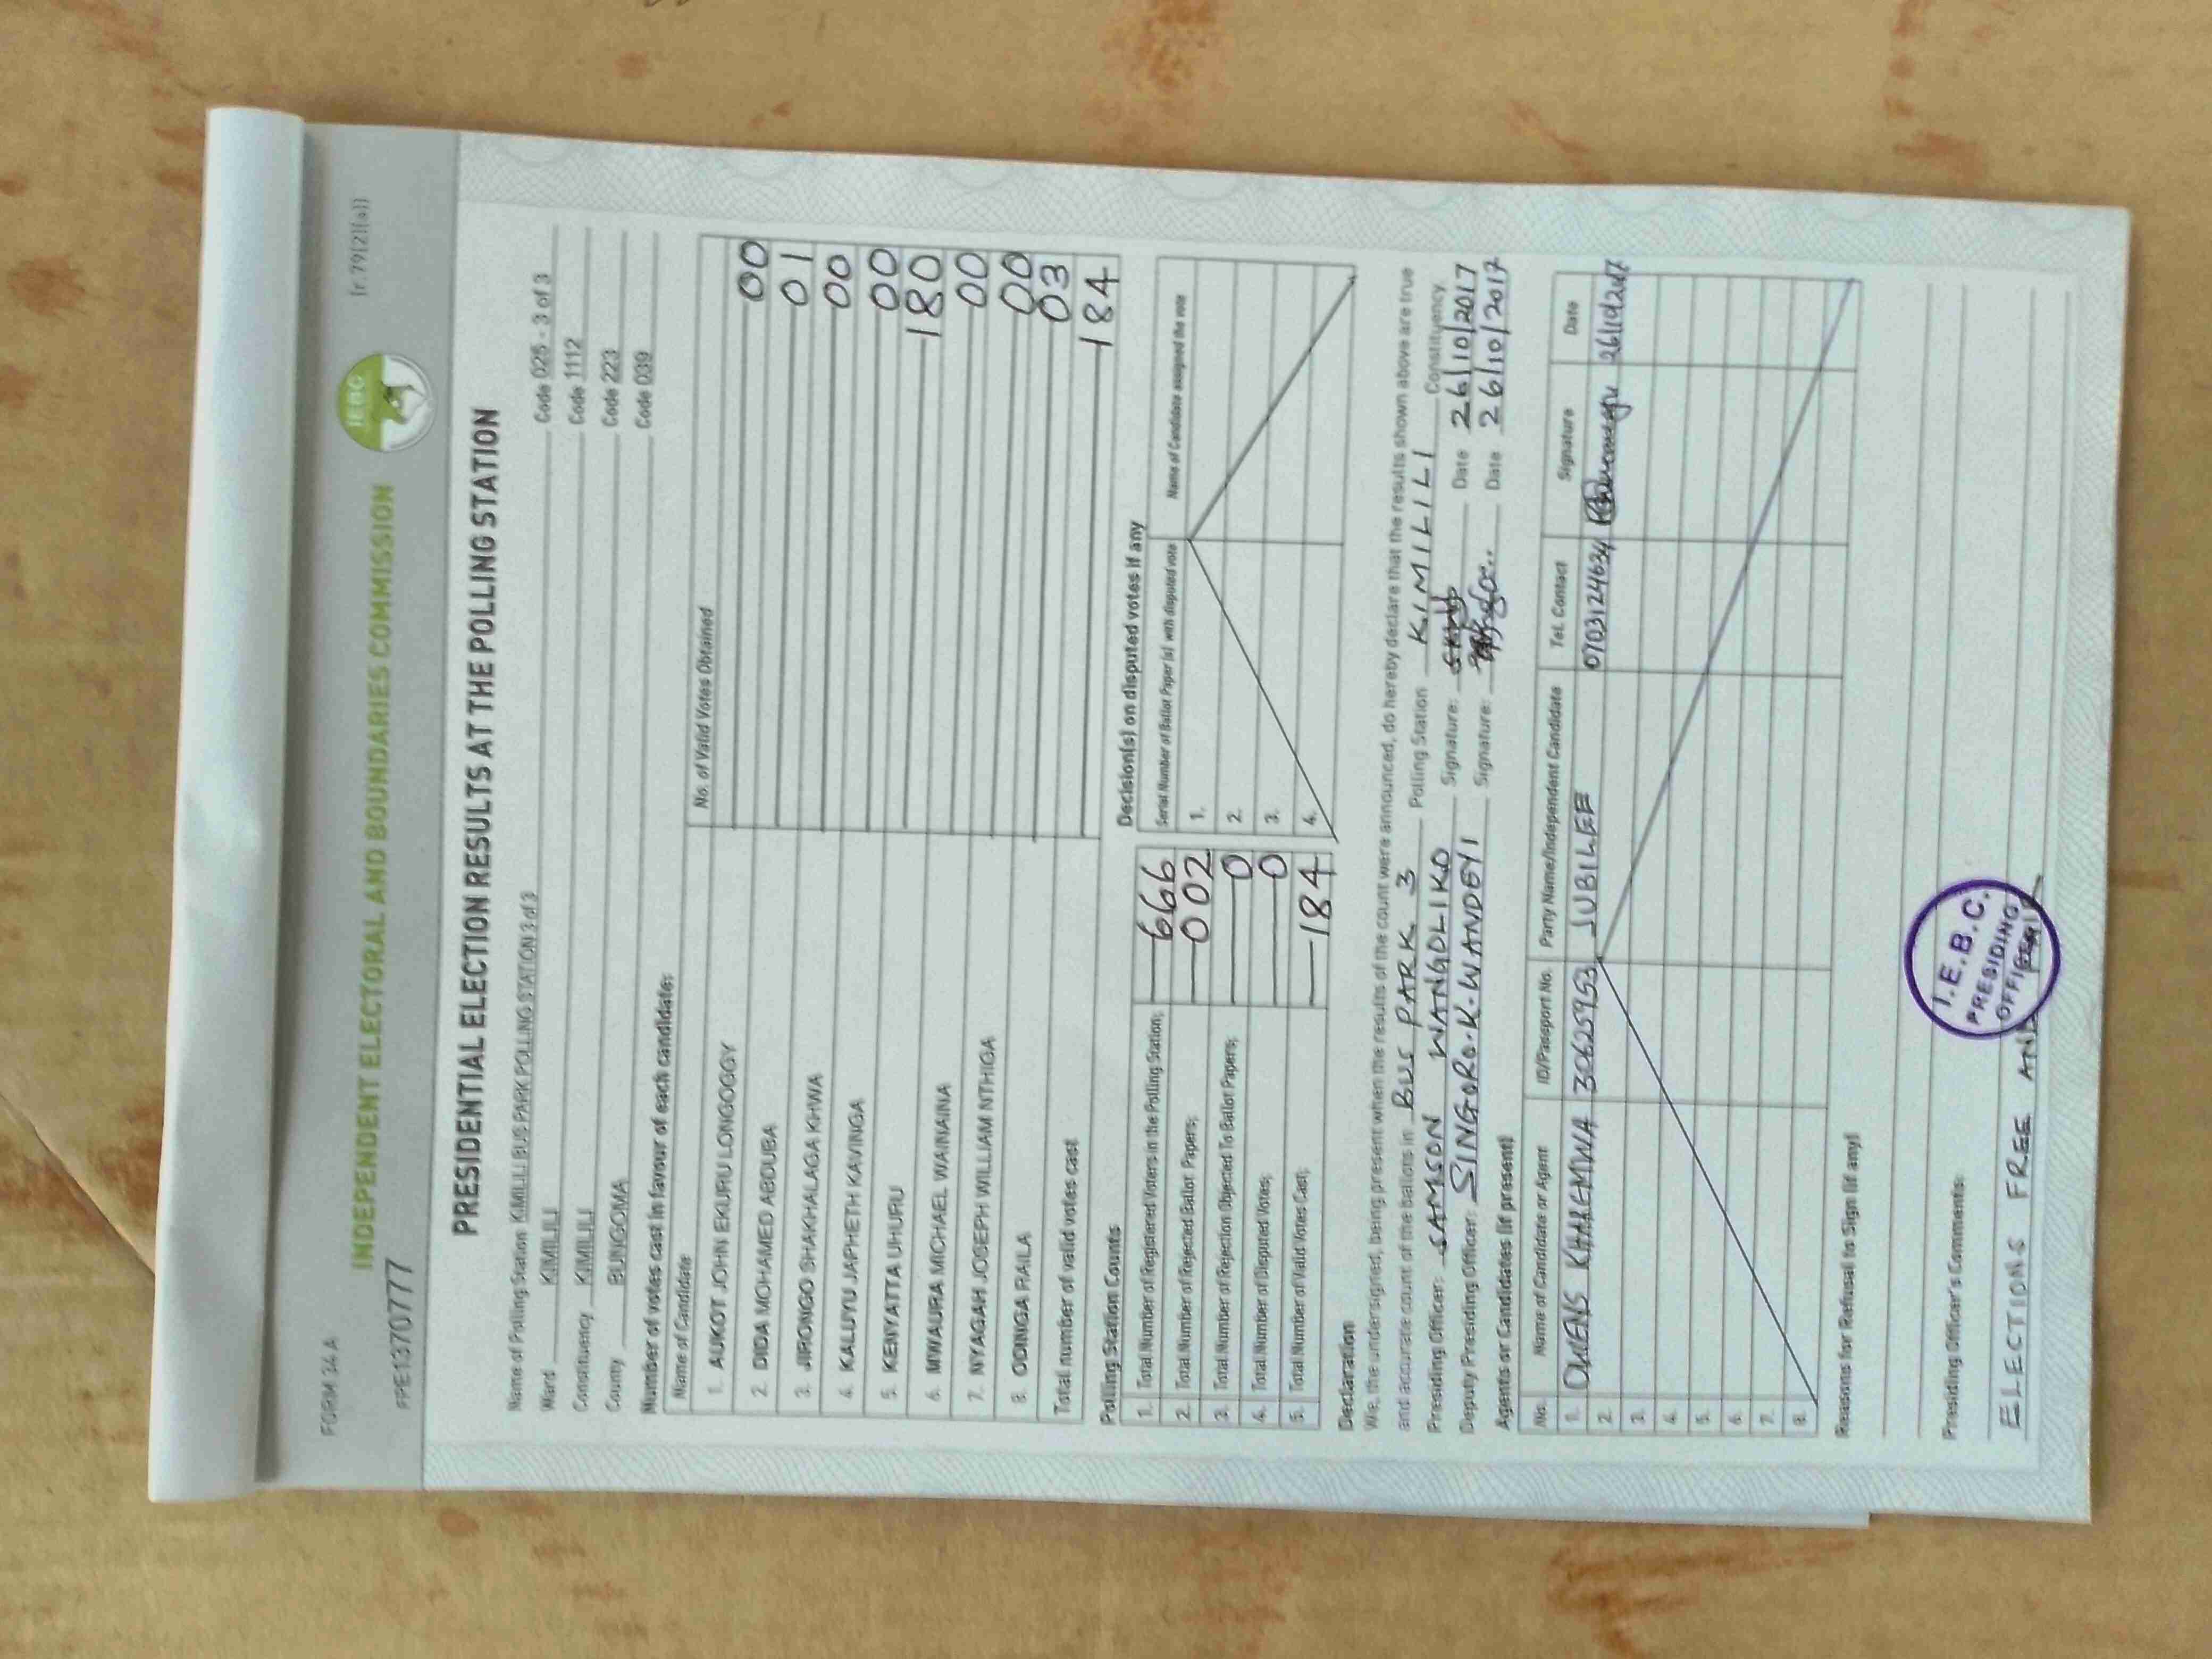 FORM 34 A [r.79(2)(a)]
INDEPENDENT ELECTORAL AND BOUNDARIES COMMISSION IEBC
PPE1370777
PRESIDENTIAL ELECTION RESULTS AT THE POLLING STATION
Name of Polling Station KIMILILI BUS PARK POLLING STATION 3 of 3 Code 025 - 3 of 3
Ward KIMILILI Code 1112
Constituency KIMILILI Code 223
County BUNGOMA Code 039
Number of votes cast in favour of each candidate:
Name of Candidate No. of Valid Votes Obtained
1. AUKOT JOHN EKURU LONGOGGY 00
2. DIDA MOHAMED ABDUBA 01
3. JIRONGO SHAKHALAGA KHWA 00
4. KALUYU JAPHETH KAVINGA 00
5. KENYATTA UHURU 180
6. MWAURA MICHAEL WAINAINA 00
7. NYAGAH JOSEPH WILLIAM NTHIGA 00
8. ODINGA RAILA 03
Total number of valid votes cast 184
Polling Station Counts Decision(s) on disputed votes if any
1. Total Number of Registered Voters in the Polling Station; 666 Serial Number of Ballot Paper (s) with disputed vote Name of Candidate assigned the vote
2. Total Number of Rejected Ballot Papers; 002 1.
3. Total Number of Rejection Objected To Ballot Papers; 0 2.
4. Total Number of Disputed Votes; 0 3.
5. Total Number of Valid Votes Cast; 184 4.
Declaration
We, the undersigned, being present when the results of the count were announced, do hereby declare that the results shown above are true
and accurate count of the ballots in BUS PARK 3 Polling Station KIMILILI Constituency.
Presiding Officer: SAMSON WANGOLIKO Signature: Date 26/10/2017
Deputy Presiding Officer: SINGORO.K.WANDEYI Signature: Date 26/10/2017
Agents or Candidates (if present)
No. Name of Candidate or Agent ID/Passport No. Party Name/Independent Candidate Tel. Contact Signature Date
1. OWENS KHAEMWA 30625953 JUBILEE 0703124634 26/10/2017
2.
3.
4.
5.
6.
7.
8.
Reasons for Refusal to Sign (if any)
Presiding Officer's Comments:
ELECTIONS FREE AND
I.E.B.C.
PRESIDING
OFFICER